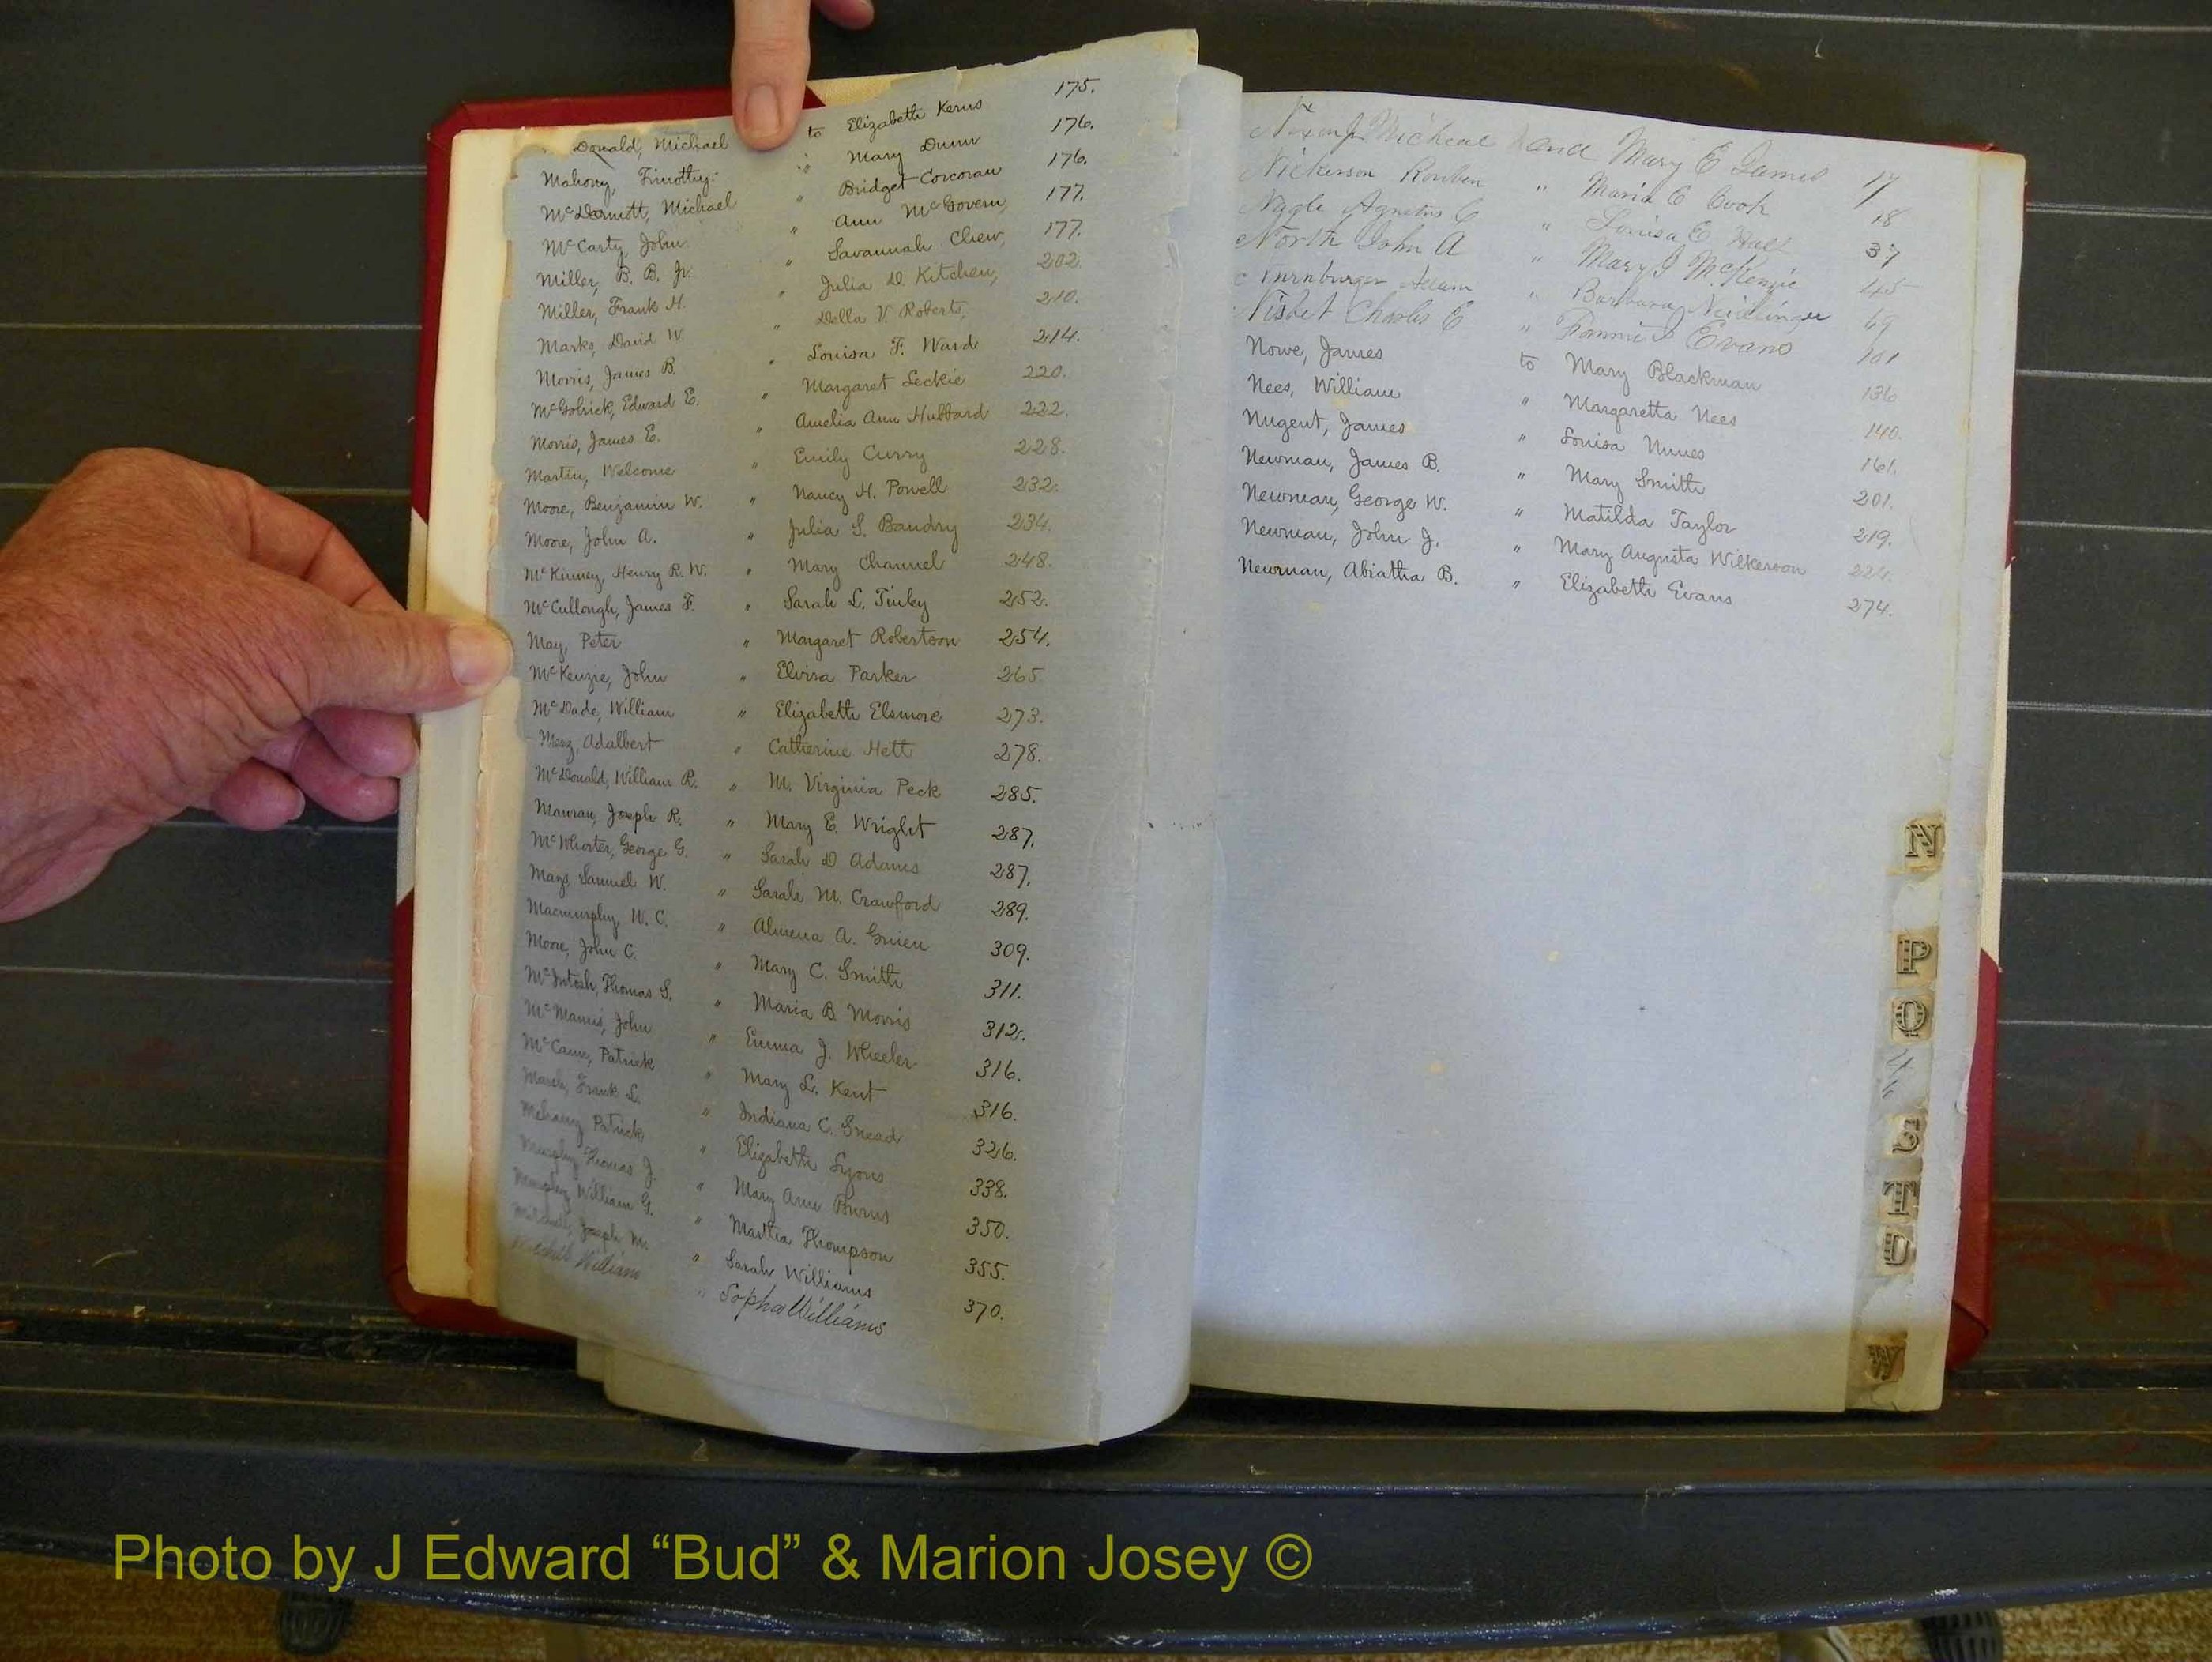 Donald, Michael to Elizabeth Kerns 175.
Mahony, Timothy " Mary Dunn 176.
McDermott, Michael " Bridget Corcoran 176.
McCarty, John " Ann McGovern, 177.
Miller, B. B. Jr. " Savannah Chew, 177.
Miller, Frank H. " Julia D. Kitchen, 202.
Marks, David W. " Della V. Roberts, 210.
Morris, James B. " Louisa F. Ward 214.
McGolrick, Edward E. " Margaret Leckie 220.
Morris, James E. " Amelia Ann Hubbard 222.
Martin, Welcome " Emily Curry 228.
Moore, Benjamin W. " Nancy H. Powell 232.
Moore, John A. " Julia S. Baudry 234.
McKinney, Henry R. W. " Mary Channel 248.
McCullough, James F. " Sarah L. Tinley 252.
May, Peter " Margaret Robertson 254.
McKenzie, John " Elvira Parker 265.
McDade, William " Elizabeth Elsmore 273.
Adalbert " Catherine Hett 278.
McDonald, William R. " M. Virginia Peck 285.
Mauran, Joseph R. " Mary E. Wright 287.
McWhorter, George G. " Sarah D. Adams 287.
Mays Samuel W. " Sarah M. Crawford 289.
Macmurphy, W. C. " Almena A. 309.
Moore, John C. " Mary C. Smith 311.
McIntosh, Thomas S. " Maria B. Morris 312.
McManus, John " Emma J. Wheeler 316.
McCann, Patrick " Mary L. Kent 316.
Frank L. " Indiana C. Snead 326.
Mahany Patrick " Elizabeth Lyons 338.
Murphy Thomas J. " Mary Ann Burns 350.
Murphy William G. " Martha Thompson 355.
Mitchell, Joseph M. " Sarah Williams 370.
William " Sopha Williams
Nixon Micheal and Mary E James 17
Nickerson Reuben " Maria E Cook 18
Nagle " Louisa E Hall 37
North John A " Mary J McKenzie 45
Adam " Barbara Neidlinger 69
Nisbet Charles E " Fannie Evans 101
Nowe, James to Mary Blackman 136
Nees, William " Margaretta Nees 140.
Nugent, James " Louisa Nunes 161.
Newman, James B. " Mary Smith 201.
Newman, George W. " Matilda Taylor 219.
Newman, John J. " Mary Augusta Wilkerson 224.
Newman, Abiatha B. " Elizabeth Evans 274.
N
P
Q
S
T
U
W
Photo by J Edward “Bud” & Marion Josey ©